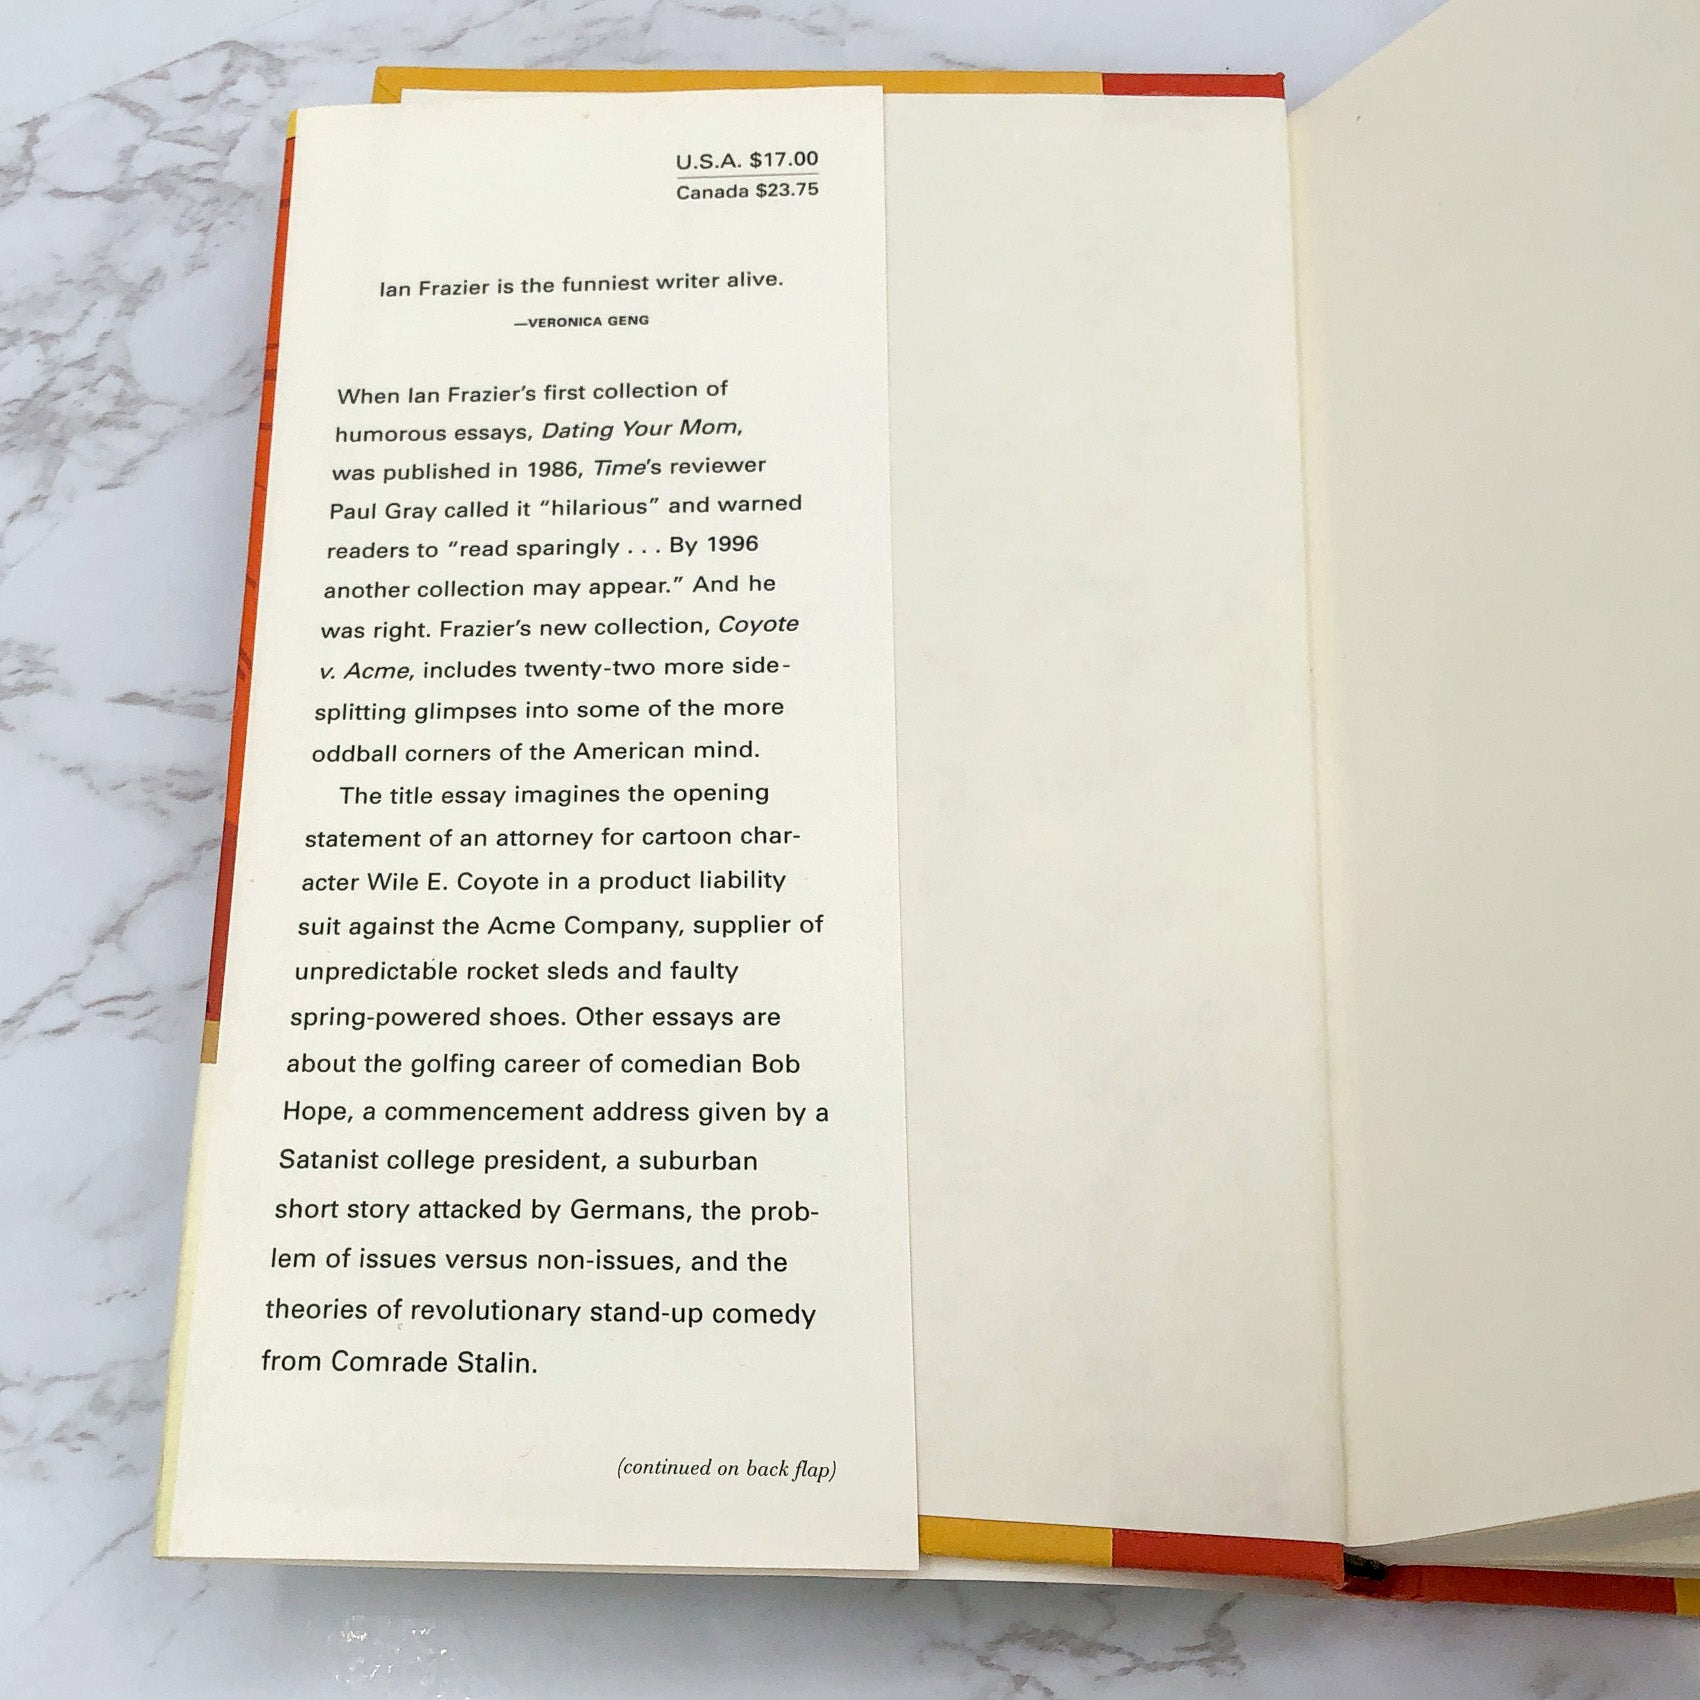 U.S.A. $17.00
Canada $23.75
Ian Frazier is the funniest writer alive.
—VERONICA GENG
When Ian Frazier's first collection of
humorous essays, Dating Your Mom,
was published in 1986, Time's reviewer
Paul Gray called it “hilarious” and warned
readers to “read sparingly . . . By 1996
another collection may appear.” And he
was right. Frazier's new collection, Coyote
v. Acme, includes twenty-two more side-
splitting glimpses into some of the more
oddball corners of the American mind.
The title essay imagines the opening
statement of an attorney for cartoon char-
acter Wile E. Coyote in a product liability
suit against the Acme Company, supplier of
unpredictable rocket sleds and faulty
spring-powered shoes. Other essays are
about the golfing career of comedian Bob
Hope, a commencement address given by a
Satanist college president, a suburban
short story attacked by Germans, the prob-
lem of issues versus non-issues, and the
theories of revolutionary stand-up comedy
from Comrade Stalin.
(continued on back flap)